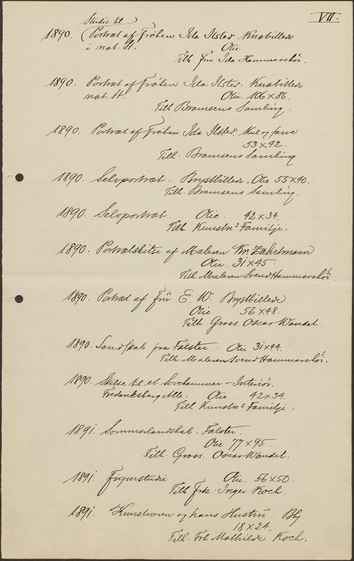 VII.
Studie til
1890. (Portræt af Frøken Ida Ilsted. Knæbillede
i nat. St. Olie
Till. Fru Ida Hammershøi.
1890. Portræt af Frøken Ida Ilsted. Knæbillede
nat. St. Olie 106 x 86.
Till. Bramsens Samling
1890. Portræt af Frøken Ida Ilsted.
53 x 42.
Till. Bramsens Samling
1890. Selvportræt. Brystbillede. Olie 55 x 40.
Till. Bramsens Samling.
1890. Selvportræt Olie 42 x 34.
Till. Kunstn^s Familje.
1890. Portrætskitse af Maleren Kr. Zahrtmann
Olie 31 x 45
Till. Maleren Svend Hammershøi
1890. Portræt af Frü E. W. Brystbillede
Olie 56 x 48.
Till. Gross. Oscar Wandel.
1890. Landskab fra Falster Olie 31 x 44.
Till. Maleren Svend Hammershøi.
1890. Skitse til et Interiør.
Frederiksberg Alle. Olie 42 x 34
Till. Kunstn^s Familje.
1891. Sommerlandskab. Falster.
Olie 77 x 95
Till. Gross. Oscar Wandel.
1891. Figurstudie Olie 56 x 50.
Till. Frk. Inger Koch
1891. Kunstneren og hans Hustru Bly
18 x 24.
Till. Frk. Mathilde Koch.